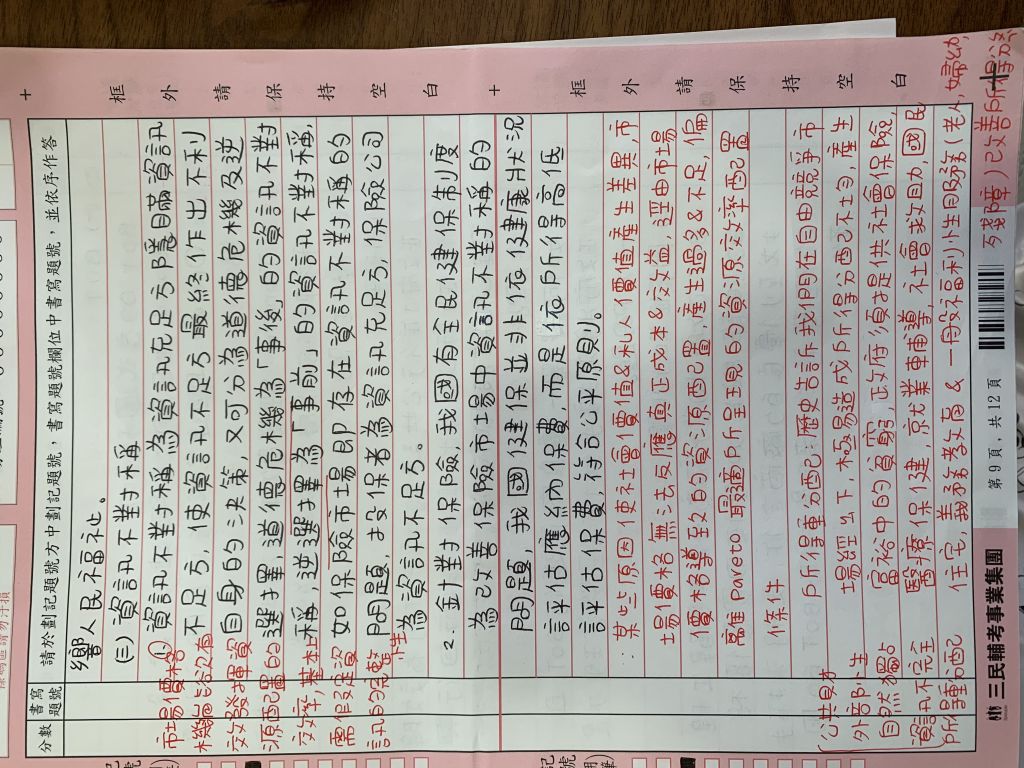 框外請保持空白
框外請保持空白
分數
書寫題號
請於劃記題號方中劃記題號，書寫題號欄位中書寫題號，並依序作答
鄉人民福祉。
(三) 資訊不對稱
1. 資訊不對稱為資訊充足方隱瞞資訊
不足方，使資訊不足方最終作出不利
自身的決策，又可分為道德危機及逆
選擇，道德危機為「事後」的資訊不對
稱，逆選擇為「事前」的資訊不對稱，
如保險市場即存在資訊不對稱的
問題，投保者為資訊充足方，保險公司
為資訊不足方。
2. 針對保險，我國有全民健保制度
為改善保險市場中資訊不對稱的
問題，我國健保並非依健康狀況
評估應納保費，而是依所得高低
評估保費，符合公平原則。
市場價格
機能
效發揮資
源配置的
效率，基本上
需假設資
訊的完整
性
∵某些原因使社會價值&私人價值產生差異，市
場價格無法反應真正成本&效益，逕由市場
價格導致的資源配置，產生過多&不足，偏
離 Pareto 最適所呈現的資源效率配置
條件
所得重分配：歷史告訴我們在自由競爭市
場經出下，極易造成所得分配不均，產生
富裕中的貧窮，政府須提供社會保險，
醫療保健，就業輔導，社會救助，國民
住宅，義務教育 & 一般福利性服務(老人，婦幼，
殘障）已改善所得分
公共財
外部性
自然獨占
資訊不完全
所得重分配
三民輔考事業集團
第 9 頁，共 12 頁